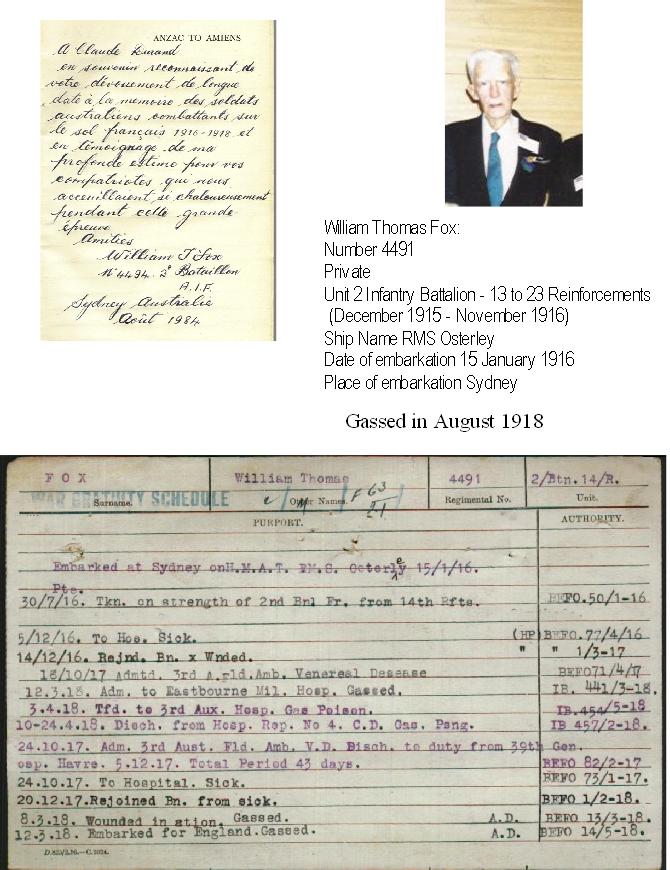 ANZAC TO AMIENS
A Claude Durand
en souvenir reconnaissant de
votre dévouement de longue
date à la memoire des soldats
australiens combattants sur
le sol français 1916-1918 et
en témoignage de ma
profonde estime pour vos
compatriotes qui nous
acceuillaient si chaloureusement
pendant cette grande
épreuve
Amitiés
William T Fox
N° 4494 2e Bataillon
A.I.F.
Sydney Australie
Août 1984
William Thomas Fox:
Number 4491
Private
Unit 2 Infantry Battalion - 13 to 23 Reinforcements
(December 1915 - November 1916)
Ship Name RMS Osterley
Date of embarkation 15 January 1916
Place of embarkation Sydney
Gassed in August 1918
FOX William Thomas 4491 2/Btn.14/R.
WAR GRATUITY SCHEDULE
Surname. Other Names. F 63/21 Regimental No. Unit.
PURPORT. AUTHORITY.
Embarked at Sydney onH.M.A.T. RM.S. Osterley 15/1/16.
Pte.
30/7/16. Tkn. on strength of 2nd Bnl Fr. from 14th Rfts. BEFO.50/1-16
5/12/16. To Hos. Sick. (HP) BEFO.77/4/16
14/12/16. Rejnd. Bn. x Wnded. " " 1/3-17
18/10/17 Admtd. 3rd A.Fld.Amb. Venereal Desease BEFO71/4/17
12.3.18. Adm. to Eastbourne Mil. Hosp. Gassed. IB. 441/3-18.
3.4.18. Tfd. to 3rd Aux. Hosp. Gas Poison. IB.454/5-18
10-24.4.18. Disch. from Hosp. Rep. No 4. C.D. Gas. Psng. IB 457/2-18.
24.10.17. Adm. 3rd Aust. Fld. Amb. V.D. Disch. to duty from 39th Gen.
osp. Havre. 5.12.17. Total Period 43 days. BEFO 82/2-17
24.10.17. To Hospital. Sick. BEFO 73/1-17.
20.12.17.Rejoined Bn. from sick. BEFO 1/2-18.
8.3.18. Wounded in ation. Gassed. A.D. BEFO 13/3-18.
12.3.18. Embarked for England.Gassed. A.D. BEFO 14/5-18.